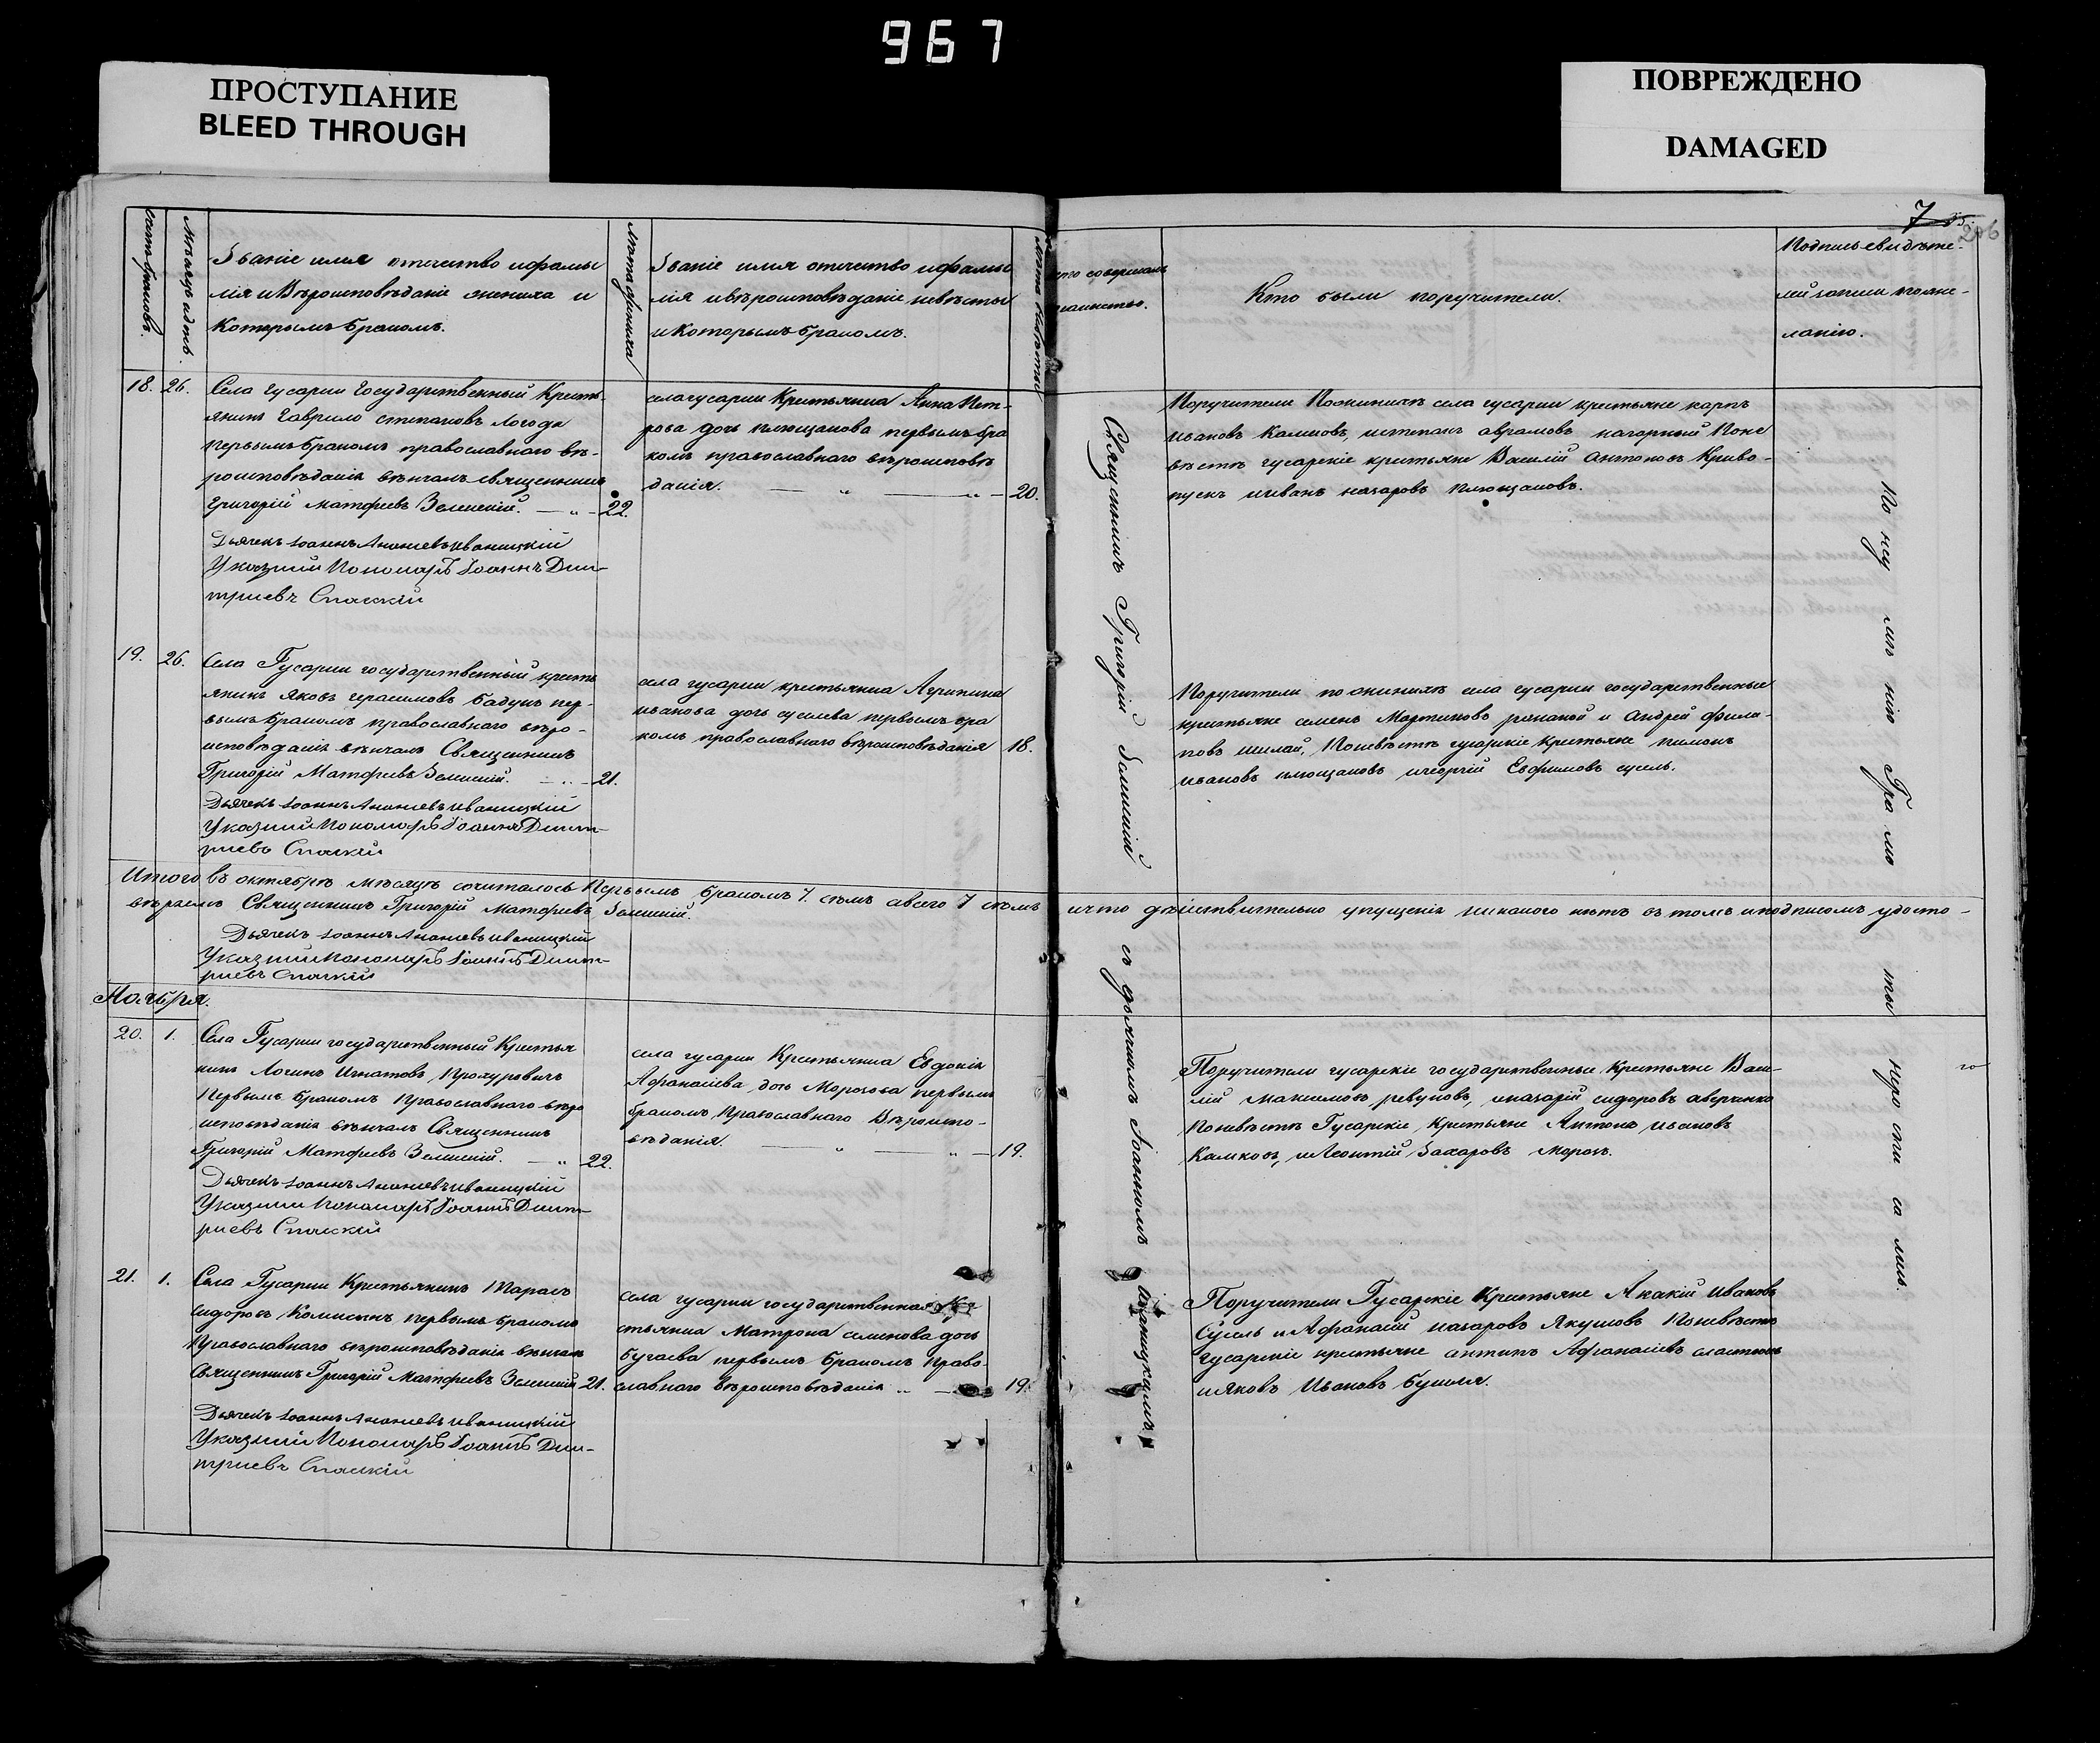 967
ПРОСТУПАНИЕ
BLEED THROUGH
ПОВРЕЖДЕНО
DAMAGED
7
206
Счетъ браковъ.
Мѣсяцъ и день.
Званіе имя отечество и фамы
лія и Вѣроисповѣданіе жениха и
Которымъ бракомъ.
Лѣта жениха
Званіе имя отечество и фамы
лія и вѣроисповѣданіе невѣсты
и Которымъ бракомъ.
Лѣта невѣсты
Кто совершалъ
таинство.
Кто были поручители.
Подпись свидѣте-
лей записи по же-
ланію.
18. 26. Села Гусарки Государственный Кресть
янинъ Гаврило Степановъ Логода
первымъ бракомъ православнаго вѣ-
роисповѣданія вѣнчалъ священникъ
Григорій Матфеевъ Зелинскій. 22.
Дьячекъ Іоаннъ Ананіевъ Иваницкій
Указный Пономарь Іоаннъ Дми-
тріевъ Спасскій
села гусарки Крестьянка Анна Пет-
рова дочь Плющакова первымъ бра
комъ православнаго вѣроисповѣ
данія. 20.
Поручители По женихѣ села гусарки крестьяне карпъ
ивановъ Калиновъ, истепанъ аврамовъ нагорный По не
вѣстѣ гусарскіе крестьяне Василій антоновъ Криво-
пускъ и иванъ назаровъ Плющаковъ.
19. 26. Села Гусарки государственный кресть
янинъ Яковъ герасимовъ бадунъ пер-
вымъ бракомъ православнаго вѣро-
исповѣданія вѣнчалъ Священникъ
Григорій Матфеевъ Зелинскій. 21.
Дьячекъ Іоаннъ Ананіевъ Иваницкій
Указный Пономарь Іоаннъ Дмит-
ріевъ Спасскій
села гусарки крестьянка Агрипина
иванова дочь суслева первымъ бра
комъ православнаго вѣроисповѣданія 18.
Поручители по женихѣ села гусарки государственные
крестьяне семенъ Мартиновъ и Андрей фили-
повъ шилай, По невѣстѣ гусарскіе крестьяне пименъ
ивановъ плющаковъ и георгій Евфимовъ сусль.
Итого въ октябрѣ мѣсяцѣ сочиталось Первымъ бракомъ 7. семь а всего 7 семь и что дѣйствительно упущенія никакого нѣтъ въ томъ и подписомъ удосто-
вѣряемъ Священникъ Григорій Матфеевъ Зелинскій.
Дьячекъ Іоаннъ Ананіевъ Иваницкій
Указный Пономарь Іоаннъ Дмит-
ріевъ Спасскій
Ноября.
20. 1. Села Гусарки государственный Крестья
нинъ Логинъ Игнатовъ Прокуровичъ
Первымъ бракомъ Православнаго вѣро
исповѣданія вѣнчалъ Священникъ
Григорій Матфеевъ Зелинскій. 22.
Дьячекъ Іоаннъ Ананіевъ Иваницкій
Указный Пономарь Іоаннъ Дмит-
ріевъ Спасскій
села гусарки Крестьянка Евдокія
Афанасіева дочь Морозова первымъ
бракомъ Православнаго Вѣроиспо-
вѣданія. 19.
Поручители гусарскіе государственные Крестьяне Васи-
лій Максимовъ ревуновъ, и назарій сидоровъ аверченко
По невѣстѣ Гусарскіе Крестьяне Антонъ ивановъ
Калновъ, и Леонтій Захаровъ морозъ.
21. 1. Села Гусарки Крестьянинъ Тарасъ
сидоровъ Колисникъ первымъ бракомъ
Православнаго вѣроисповѣданія вѣнчалъ
Священникъ Григорій Матфеевъ Зелинскій 21.
Дьячекъ Іоаннъ Ананіевъ Иваницкій
Указный Пономарь Іоаннъ Дми-
тріевъ Спасскій
села гусарки государственная Кре
стьянка Матрона семенова дочь
бугаева первымъ бракомъ право-
славнаго вѣроисповѣданія 19.
Поручители Гусарскіе Крестьяне Акакій Ивановъ
Сусль и Афанасій назаровъ Якушовъ По невѣстѣ
гусарскіе крестьяне антипъ Афанасіевъ
и Яковъ Ивановъ бушля.
Священникъ Григорій Зелинскій съ дьячкомъ Іоанномъ Иваницкимъ.
По неу мѣ нію Гра мо ты